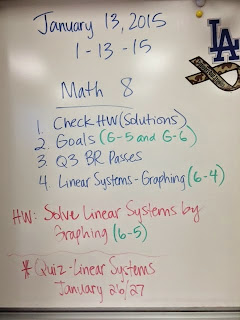 January 13, 2015
1-13-15
Math 8
1. Check HW (Solutions)
2. Goals (6-5 and 6-6)
3. Q3 BR Passes
4. Linear Systems - Graphing (6-4)
HW: Solve Linear Systems by
Graphing (6-5)
* Quiz - Linear Systems
January 26/27
LA